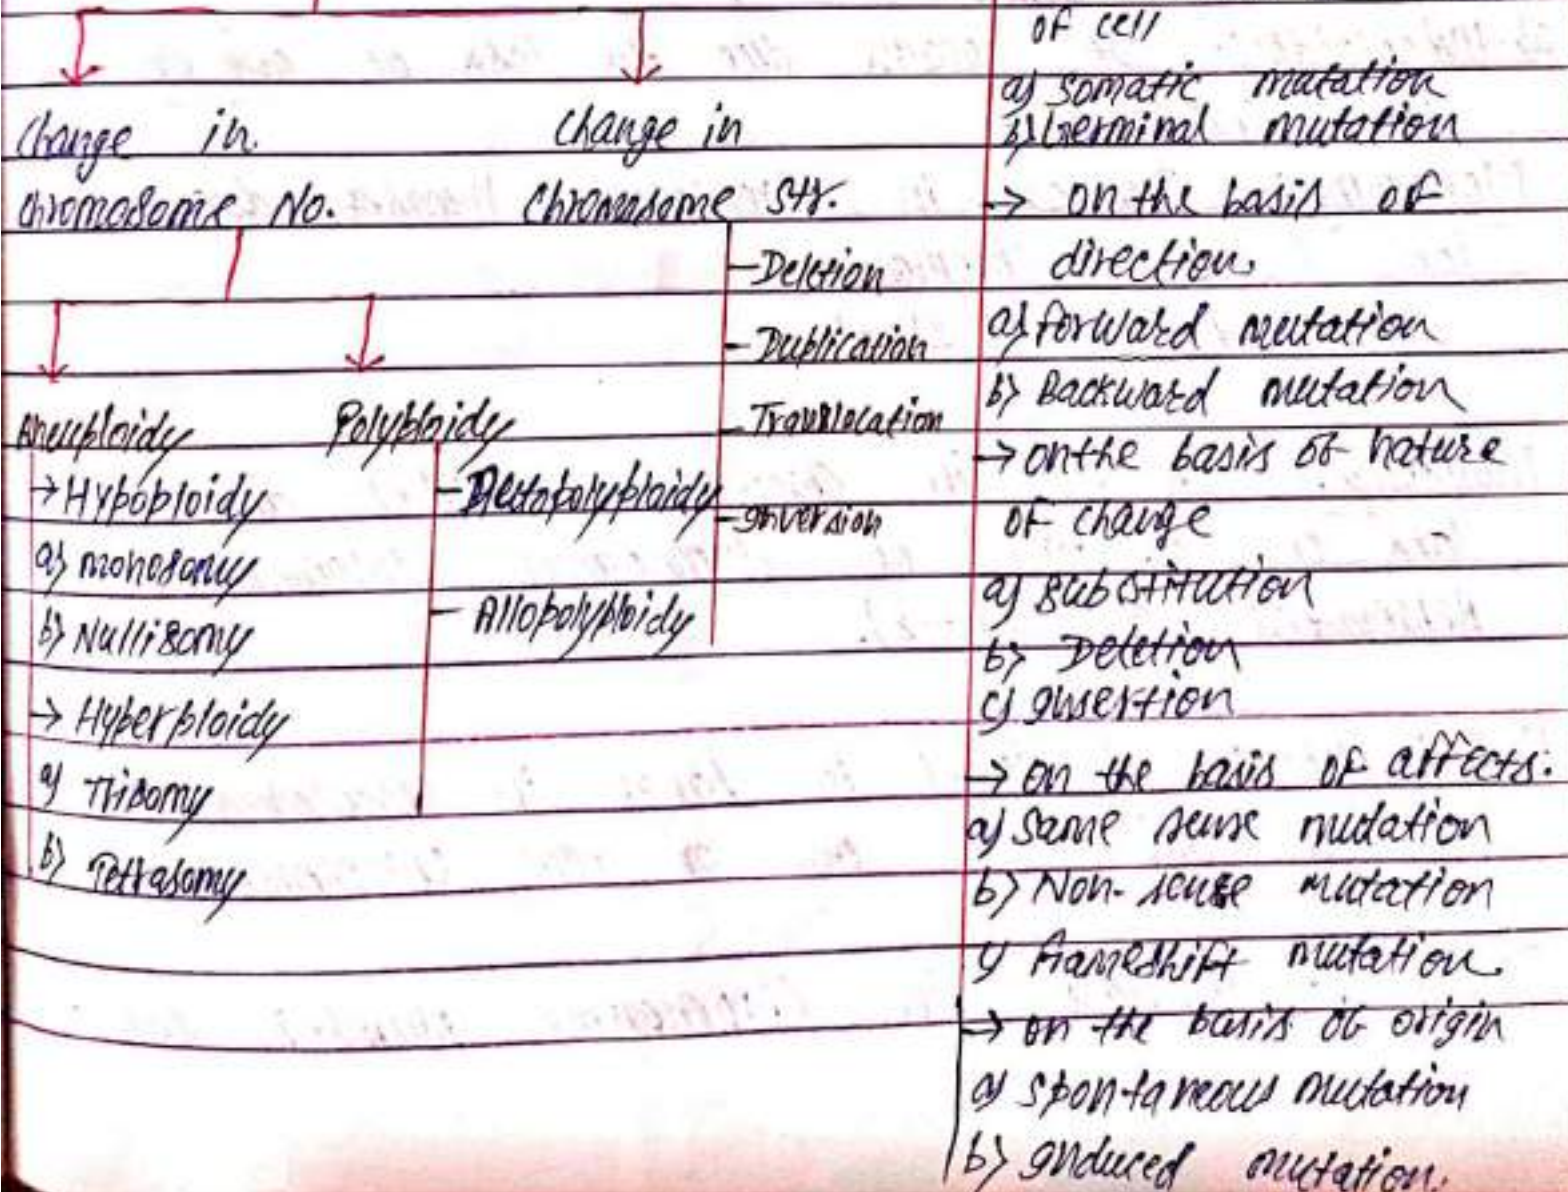 Change in
chromosome No.
Aneuploidy
→ Hypoploidy
a) monosomy
b) Nullisomy
→ Hyperploidy
a) Trisomy
b) Tetrasomy
Polyploidy
Autopolyploidy
Allopolyploidy
Change in
Chromosome Str.
Deletion
Duplication
Translocation
Inversion
of cell
a) Somatic mutation
b) Germinal mutation
→ on the basis of
direction.
a) forward mutation
b) Backward mutation
→ on the basis of nature
of change
a) substitution
b) Deletion
c) Insertion
→ on the basis of affects.
a) Same sense mutation
b) Non-sense mutation
c) frameshift mutation.
→ on the basis of origin
a) spontaneous mutation
b) Induced mutation.